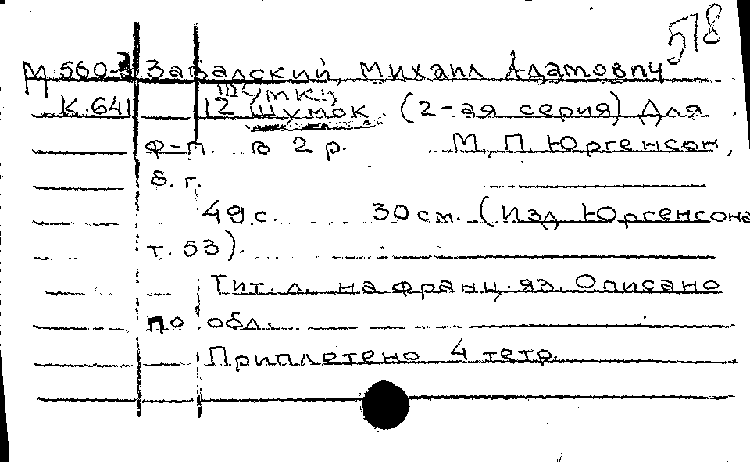 578
М 560-3 Завадский, Михаил Адамович
Шутки
К.641 12 Шумок (2-ая серия) Для
ф-п. в 2 р. М, П. Юргенсон,
б. г.
49 с. 30 см. (Изд. Юргенсона
т. 53).
Тит. л. на франц. яз. Описано
по обл.
Приплетено 4 тетр.